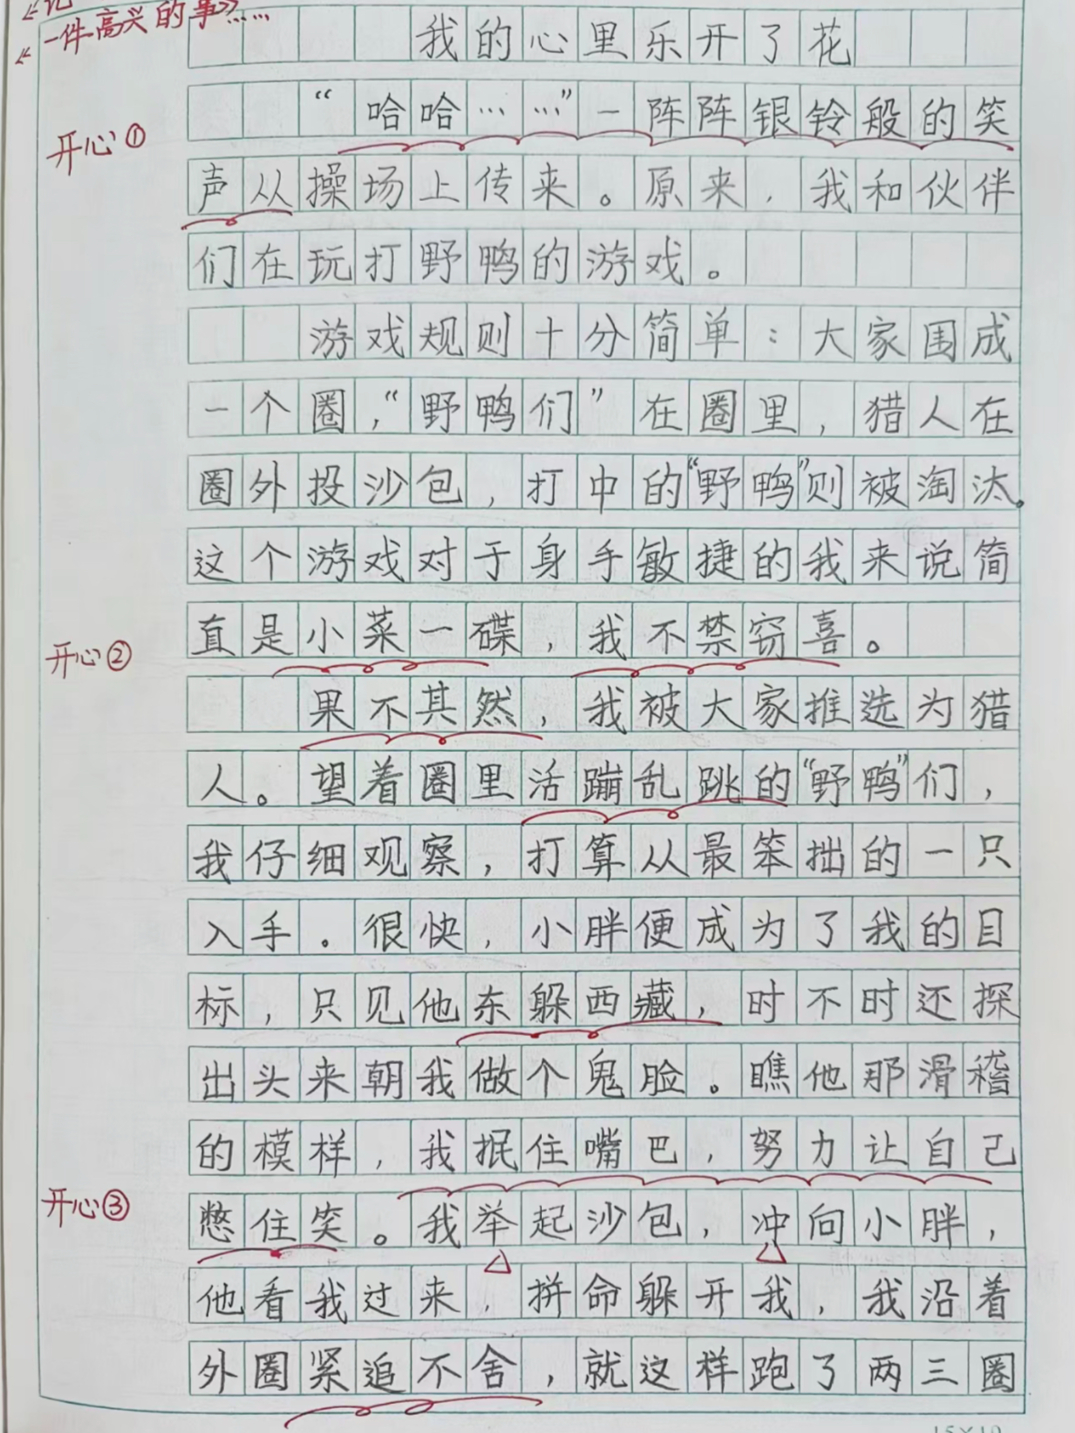 一件高兴的事》……
我的心里乐开了花
“哈哈……”一阵阵银铃般的笑
开心①
声从操场上传来。原来，我和伙伴
们在玩打野鸭的游戏。
游戏规则十分简单：大家围成
一个圈，“野鸭们”在圈里，猎人在
圈外投沙包，打中的“野鸭”则被淘汰。
这个游戏对于身手敏捷的我来说简
直是小菜一碟，我不禁窃喜。
开心②
果不其然，我被大家推选为猎
人。望着圈里活蹦乱跳的“野鸭”们，
我仔细观察，打算从最笨拙的一只
入手。很快，小胖便成为了我的目
标，只见他东躲西藏，时不时还探
出头来朝我做个鬼脸。瞧他那滑稽
的模样，我抿住嘴巴，努力让自己
开心③
憋住笑。我举起沙包，冲向小胖，
他看我过来，拼命躲开我，我沿着
外圈紧追不舍，就这样跑了两三圈